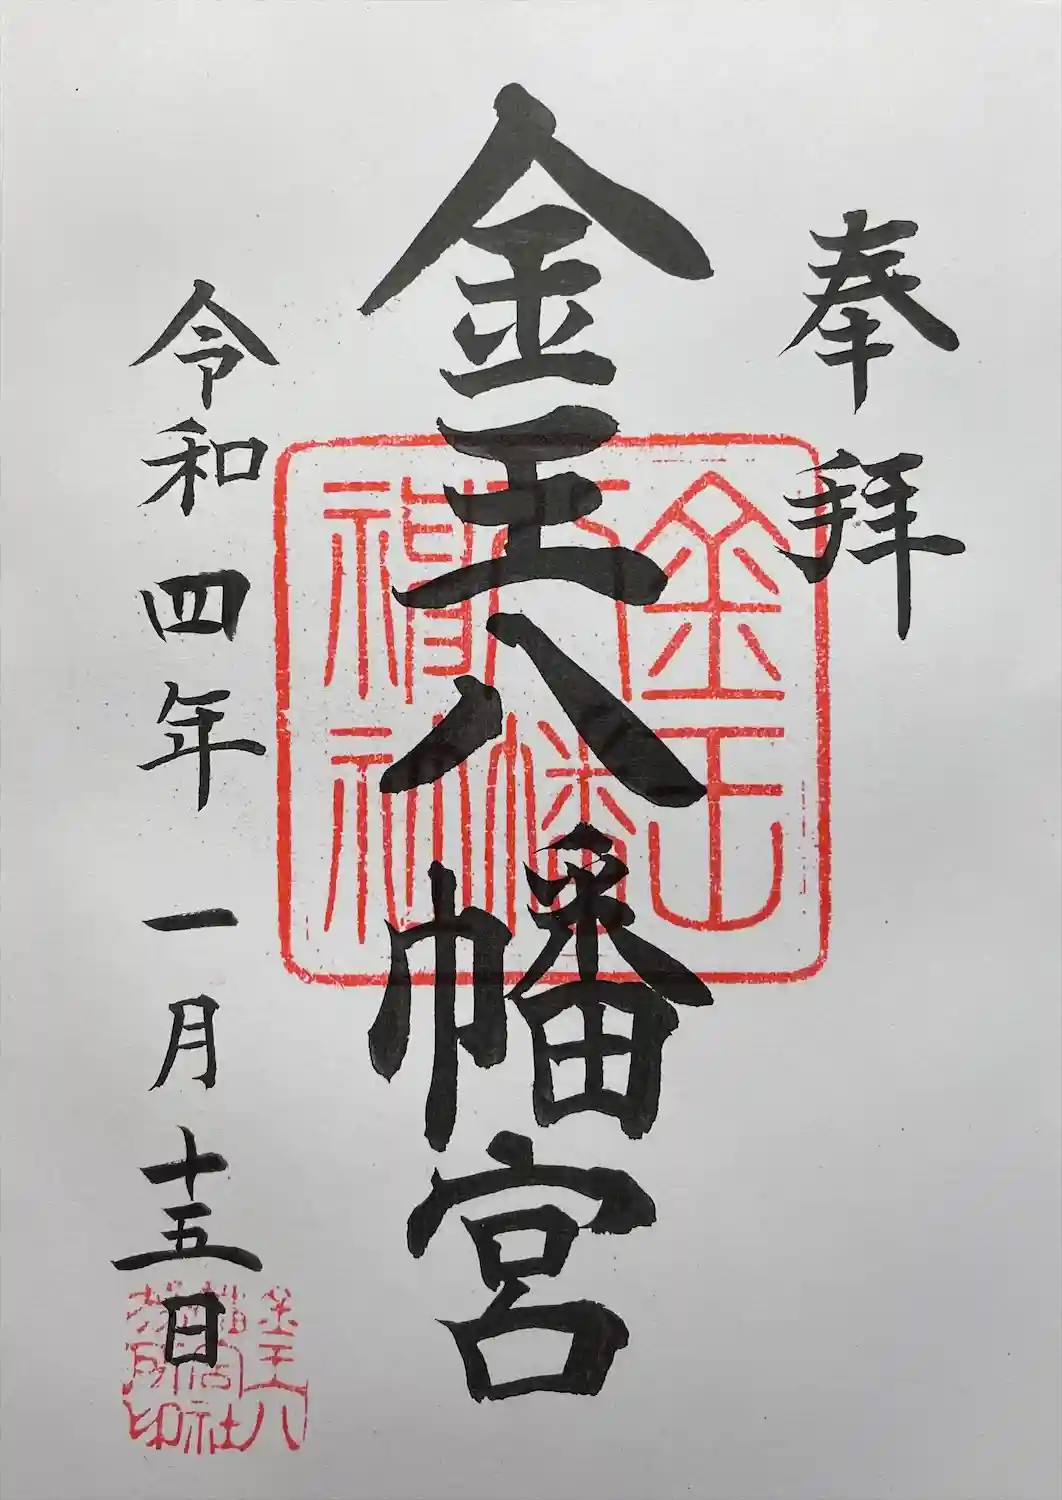 奉拝
金王八幡宮
金王八幡神社
令和四年一月十五日
金王八幡宮社務所印